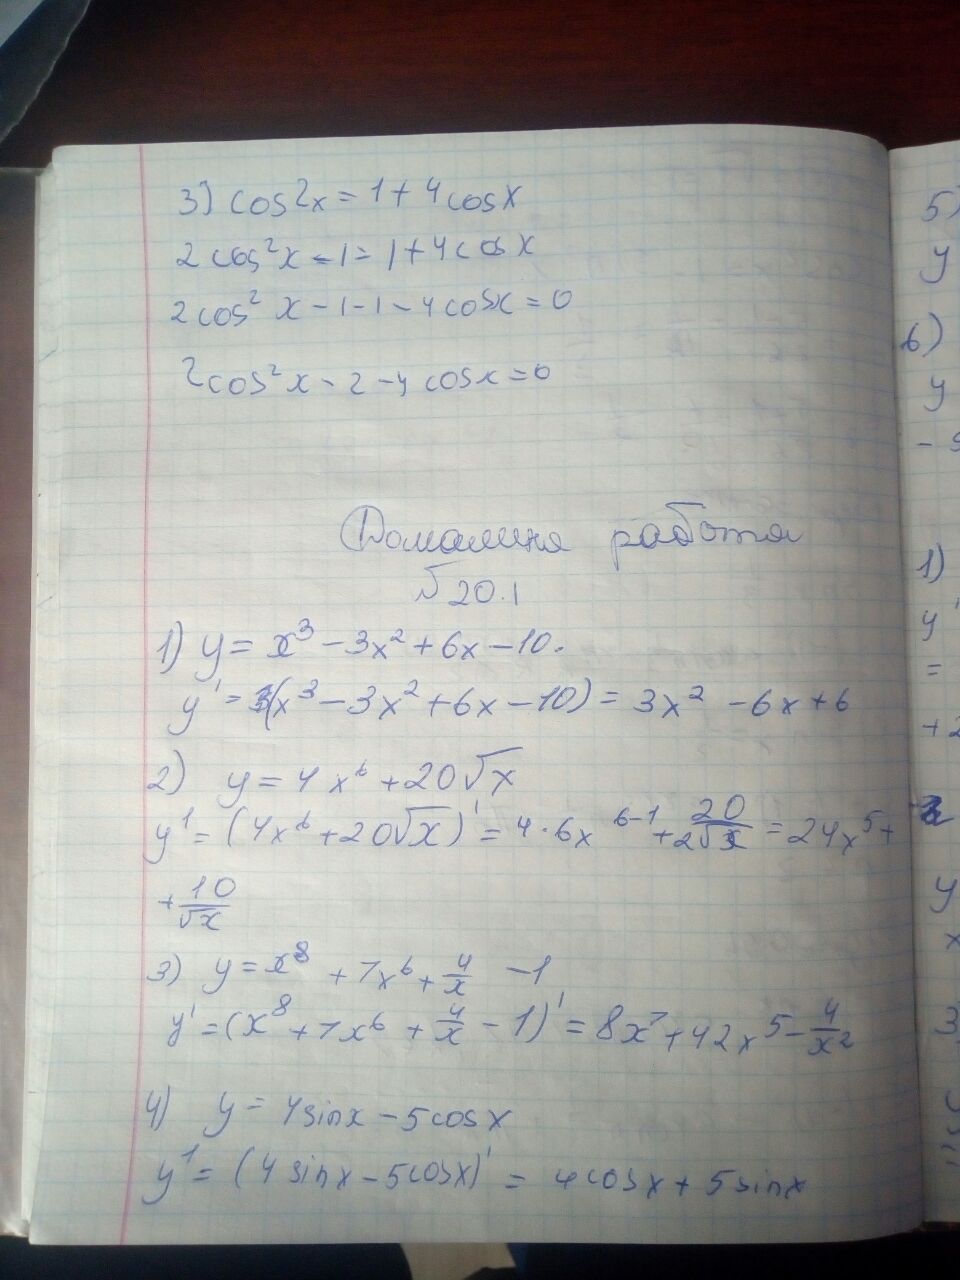 3) cos2x = 1 + 4cosx
2cos²x - 1 = 1 + 4cosx
2cos² x - 1 - 1 - 4cosx = 0
2cos²x - 2 - 4cosx = 0
Домашня робота
№20.1
1) y = x³ - 3x² + 6x - 10.
y' = (x³ - 3x² + 6x - 10) = 3x² - 6x + 6
2) y = 4x⁶ + 20√x
y' = (4x⁶ + 20√x)' = 4·6x⁶⁻¹ + 20/2√x = 24x⁵ +
+ 10/√x
3) y = x⁸ + 7x⁶ + 4/x - 1
y' = (x⁸ + 7x⁶ + 4/x - 1)' = 8x⁷ + 42x⁵ - 4/x²
4) y = 4sinx - 5cosx
y' = (4sinx - 5cosx)' = 4cosx + 5sinx
5)
y
6)
y
1)
y'
=
+2
y
x
3